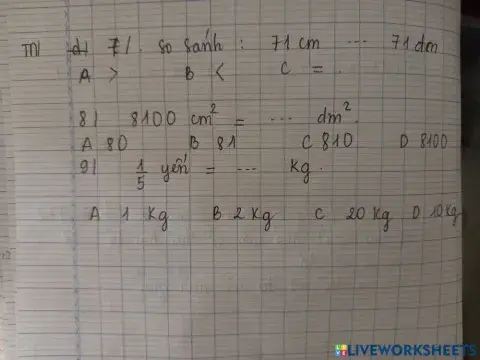 7/. so sánh : 71 cm ... 71 dm
A > B < C = .
8/ 8100 cm² = ... dm².
A 80 B 81 C 810 D 8100
9/ 1/5 yến = ... Kg.
A 1 Kg B 2 Kg C 20 Kg D 10 Kg
LIVEWORKSHEETS